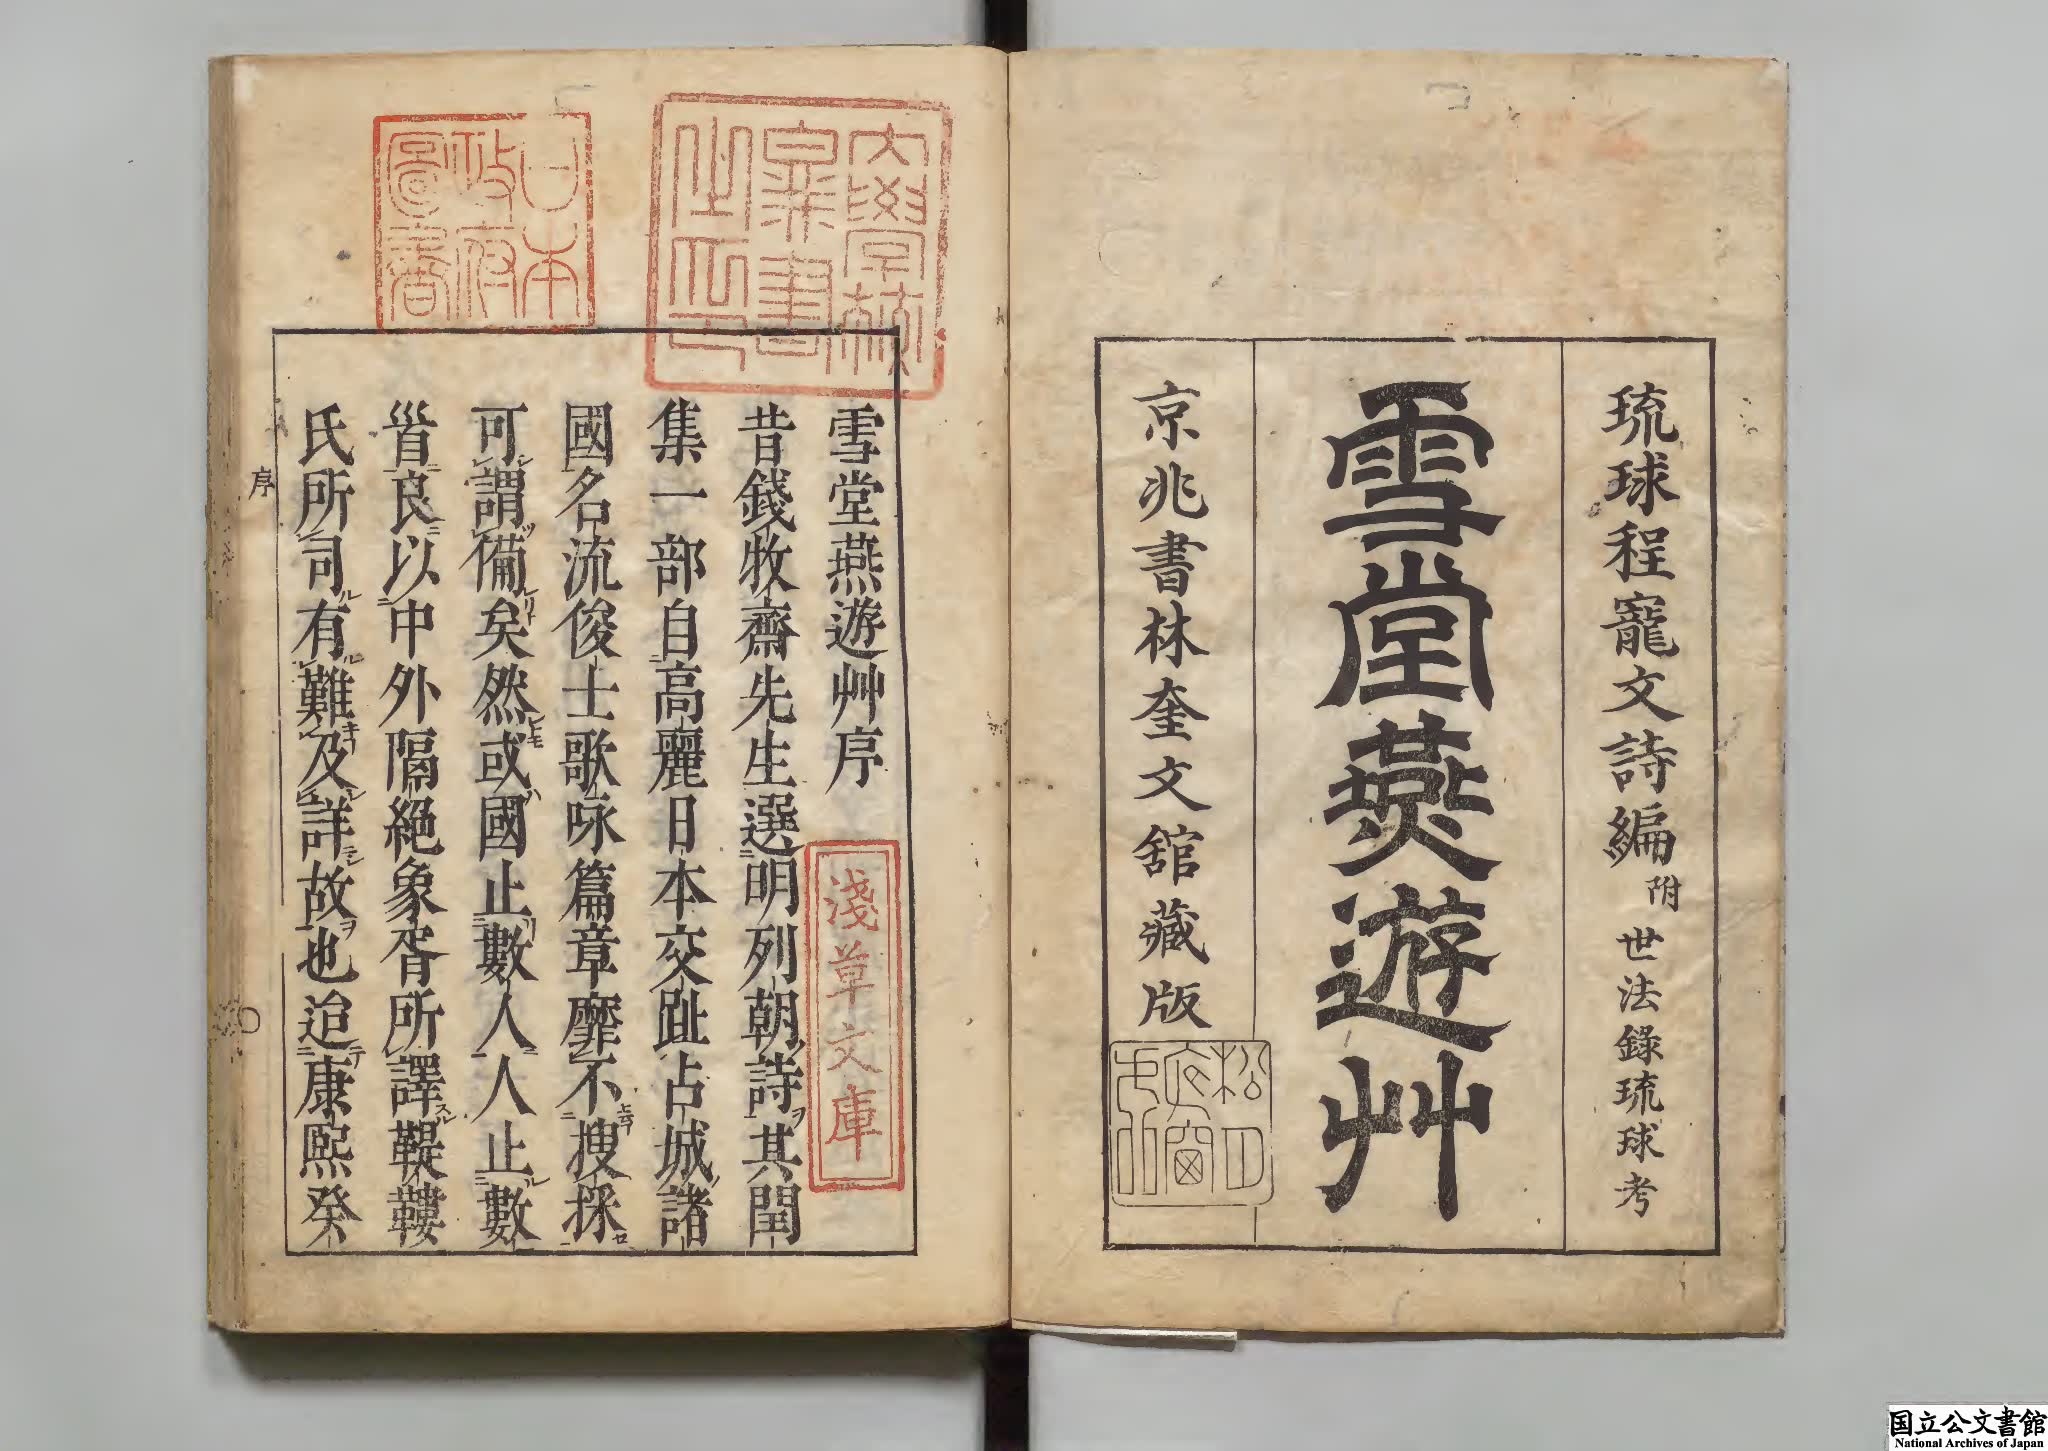 琉球程寵文詩編附世法錄琉球考
雪堂燕遊艸
京兆書林奎文舘藏版
大學校
藏書
之印
日本
政府
圖書
雪堂燕遊艸序
昔錢牧齋先生選明列朝詩其閏
集一部自高麗日本交趾占城諸
國名流俊士歌咏篇章靡不搜採
可謂備矣然或國止數人人止數
首良以中外隔絕象胥所譯鞮鞻
氏所司有難及詳故也迨康熙癸
序
淺草文庫
国立公文書館
National Archives of Japan